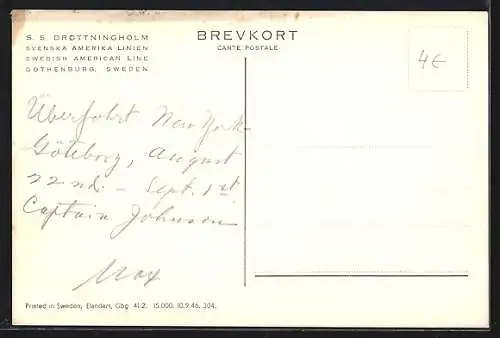 S. S. DROTTNINGHOLM
SVENSKA AMERIKA LINIEN
SWEDISH AMERICAN LINE
GOTHENBURG, SWEDEN
BREVKORT
CARTE POSTALE
4€
Überfahrt New York
Göteborg, August
22nd – Sept. 1st
Captain Johnson
Max
Printed in Sweden, Elanders, Gbg 412. 15.000. 10.9.46. 304.